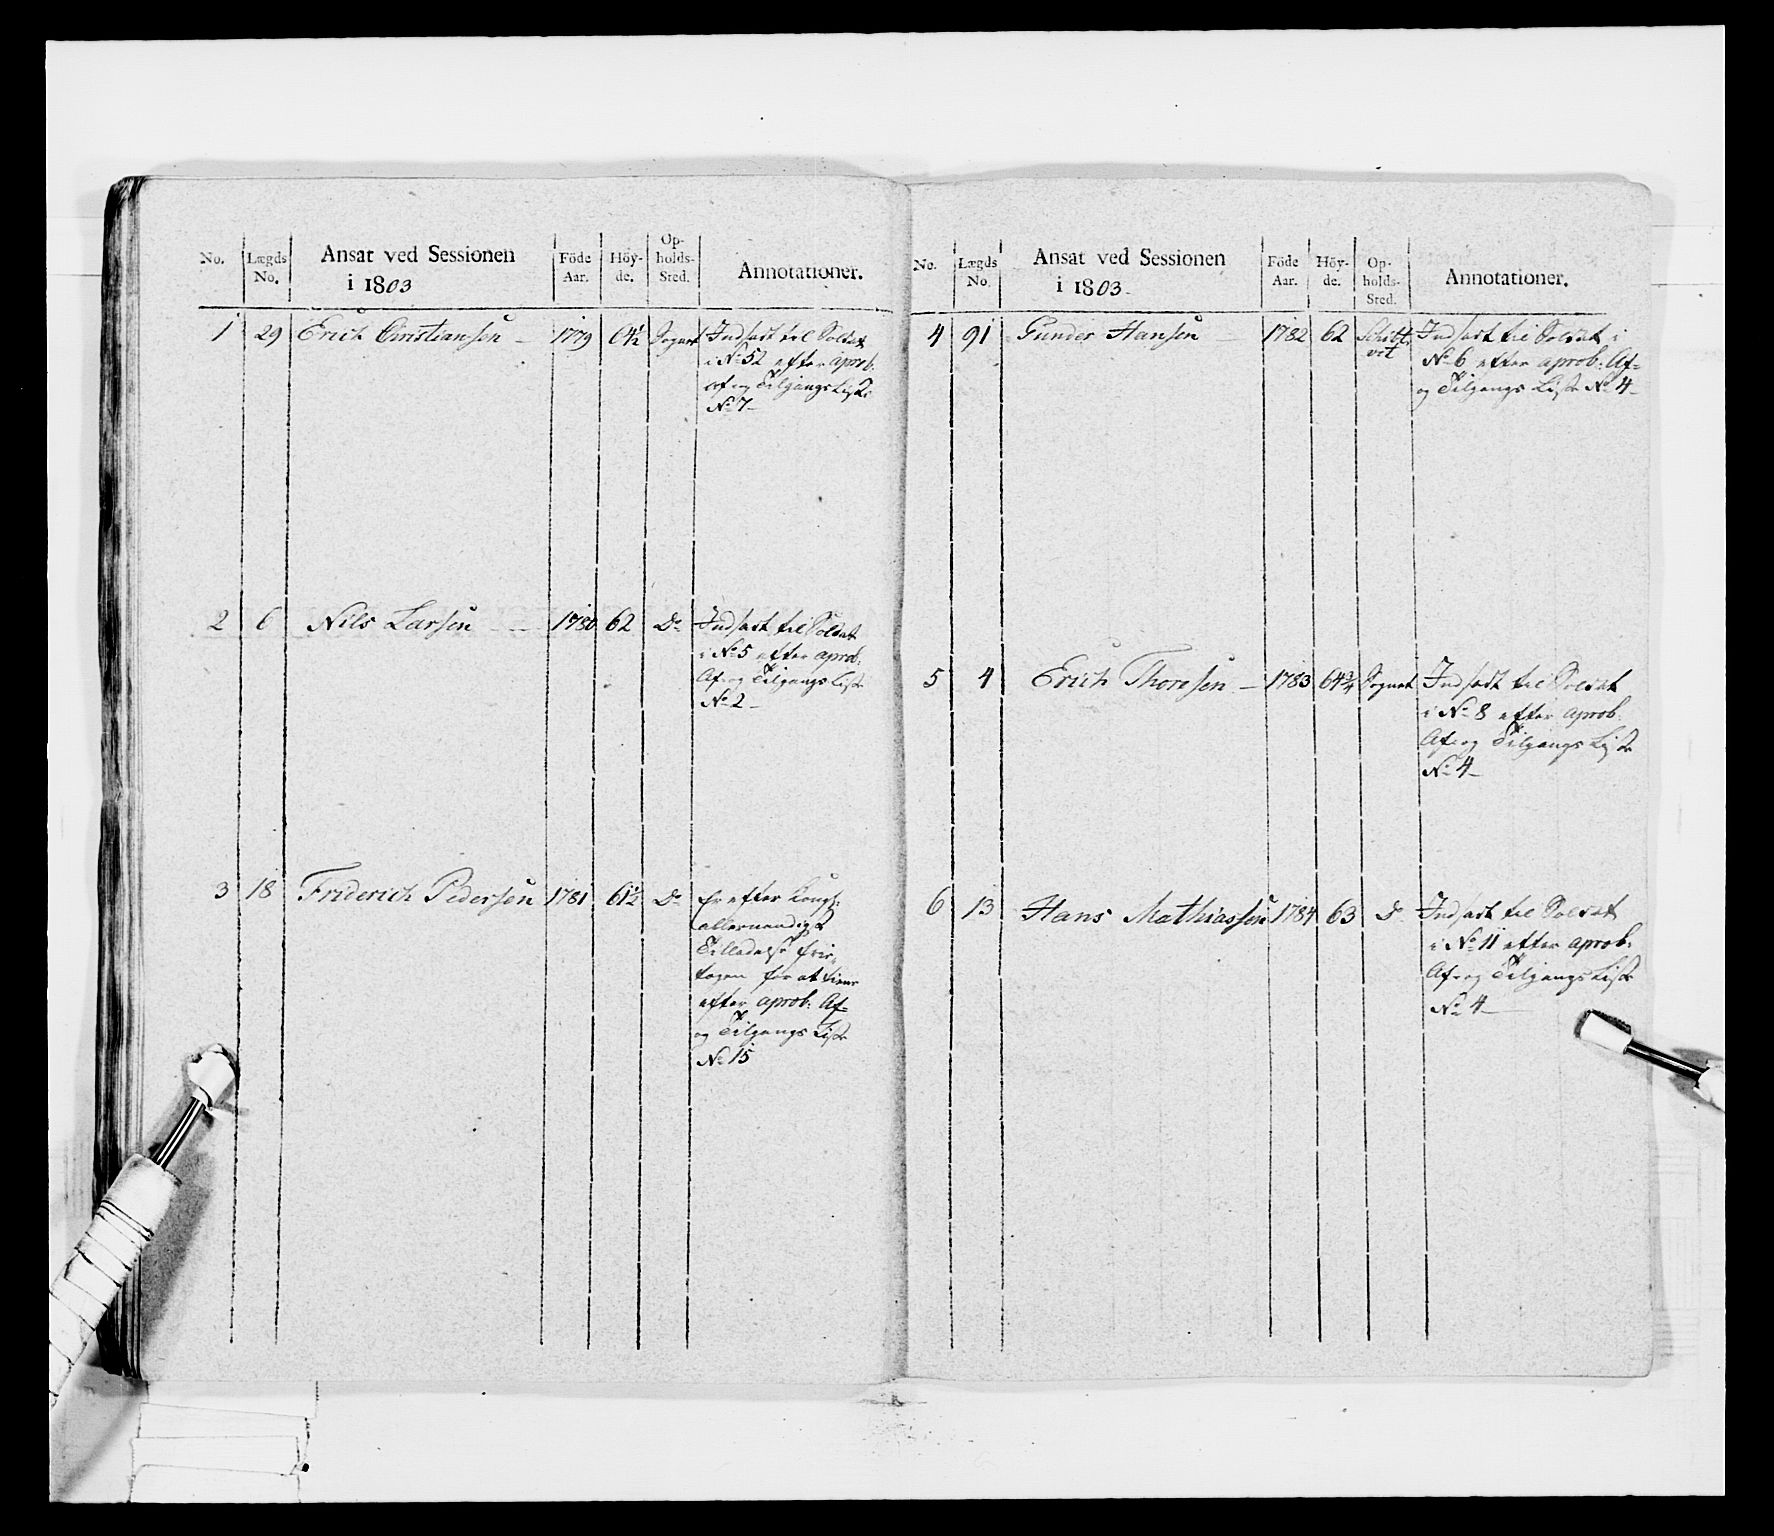 No. Lægds No. Ansat ved Sessionen i 1803 Föde Aar. Höy- de. Op- holds- Sted. Annotationer.
1 29 Erich Christiansen 1779 64½ Sognet Indsadt til Soldat
i No 52 efter aprob:
Af og Tilgangs Liste
No 7
2 6 Nils Larsen 1780 62 Do Indsadt til Soldat
i No 5 efter aprob:
Af- og Tilgangs Liste
No 2
3 18 Friderich Pedersen 1781 61½ Do Er efter Kongl:
allernaadigst
Tilladelse frie-
tagen for at tiene
efter aprob: Af-
og Tilgangs Liste
No 15
No. Lægds No. Ansat ved Sessionen i 1803 Föde Aar. Höy- de. Op- holds- Sted. Annotationer.
4 91 Gunder Hansen 1782 62 Indsadt til Soldat i
No 6 efter aprob: Af-
og Tilgangs Liste No 4
5 4 Erich Thoresen 1783 64¾ Sognet Indsadt til Soldat
i No 8 efter aprob:
Af- og Tilgangs Liste
No 4
6 13 Hans Mathiassen 1784 63 Do Indsadt til Soldat
i No 11 efter aprob:
Af- og Tilgangs Liste
No 4